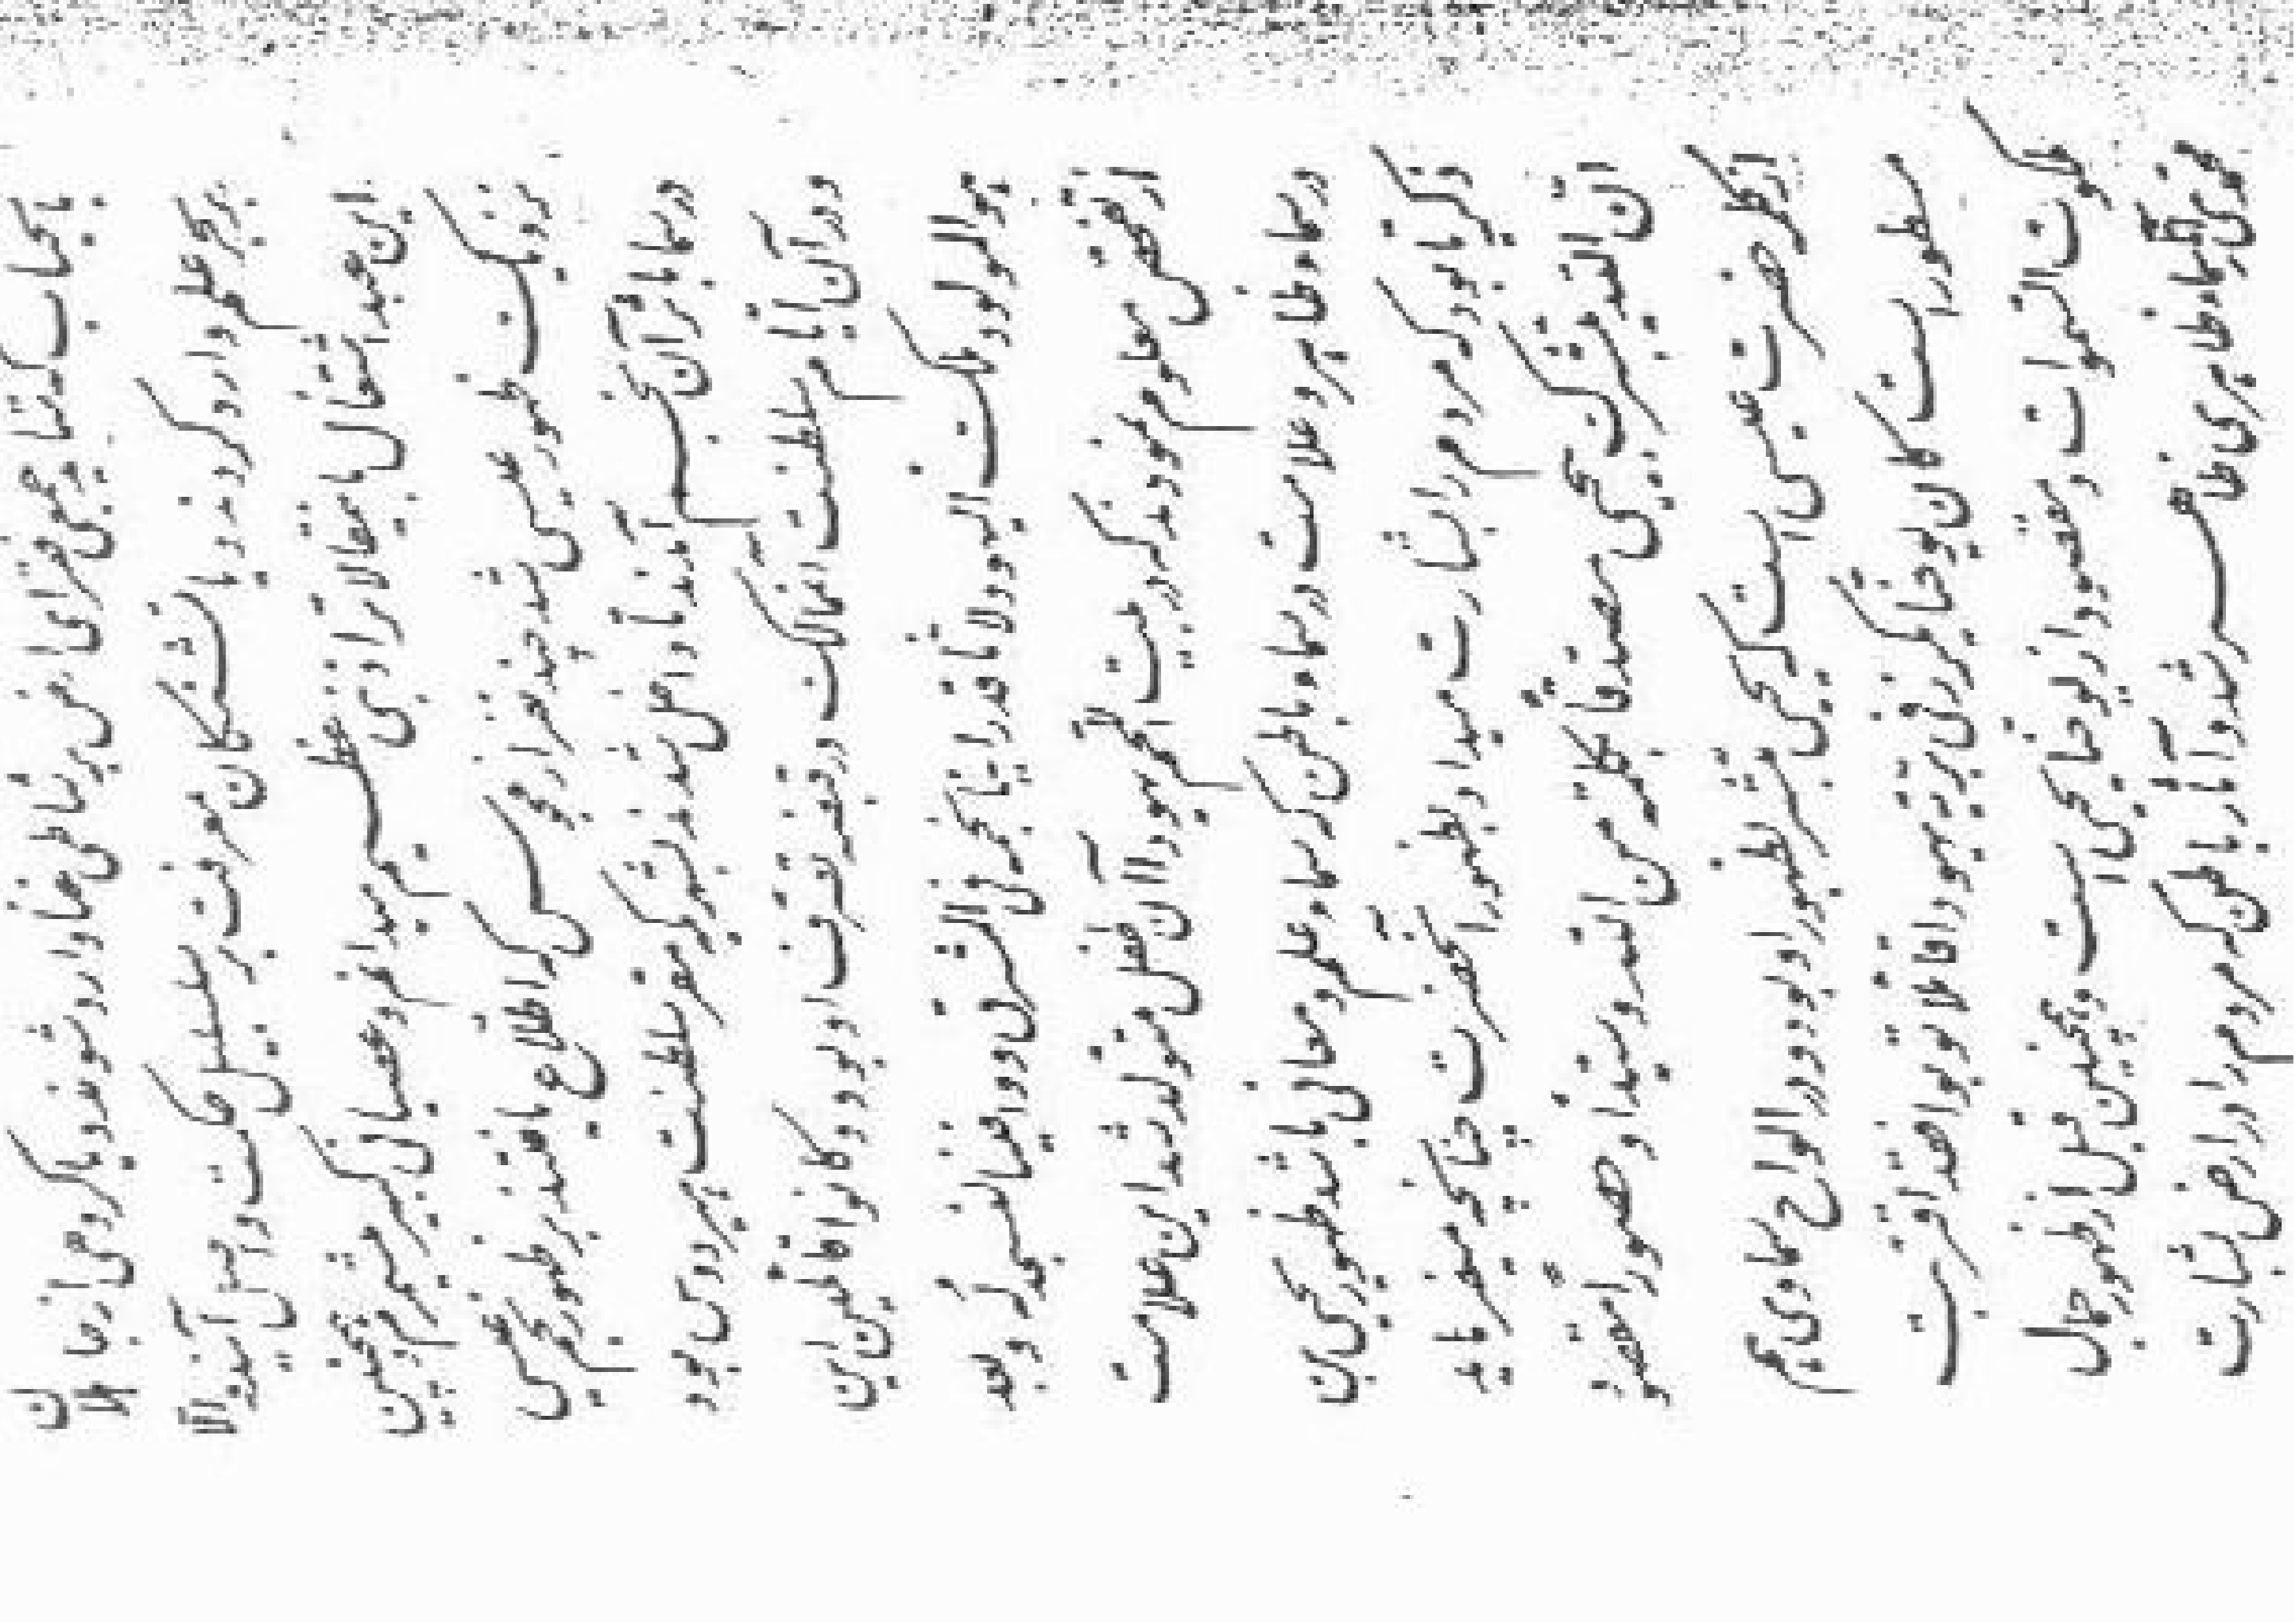 باحباب که شاید جمعی فقرای ارض بر شاطی غنا وارد شوند و یا گروهی از جاهلان
ببحر علم وارد گردند و یا تشنگان معرفت بر سلسبیل حکمت درآیند و الّا
این عبد اشتغال باین مقالات را ذنبی عظیم میدانم و عصیانی کبیر میشمرم و همچنین
نزدیک ظهور عیسی شد چند نفر از مجوس که اطلاع یافتند بر ظهور نجم عیسی
در سماء باثر آن نجم آمدند تا داخل شدند بشهری که مقر سلطنت هیرودس بود
و در آن ایام سلطنت آنممالک در قبضه تصرف او بود و کانوا قائلین این
هو المولود ملک الیهود لانّا قد راینا نجمه فی المشرق و وافینا لنسجد له و بعد
از تفحص معلوم نمودند که در بیت اللحم یهودا آن طفل متولد شد این علامت
در سماء ظاهره و علامت در سماء باطن که سماء علم و معانی باشد ظهور یحیی بن
زکریا بود که مردم را بشارت میداد بظهور آنحضرت چنانچه میفرماید
ان اللّه یبشرک بیحیی مصدقاً بکلمة من اللّه و سیداً و حصوراً مقصود
از کلمه حضرت عیسی است که یحیی مبشر بظهور او بود و در الواح سماوی هم
مسطور است کان یوحنا یکرز فی بریة یهودا قائلا توبوا لقد اقترب
ملکوت السموات و مقصود از یوحنا یحیی است و همچنین قبل از ظهور جمال
محمدی آثار سماء ظاهری ظاهر شد و آثار باطن که مردم را در ارض بشارت